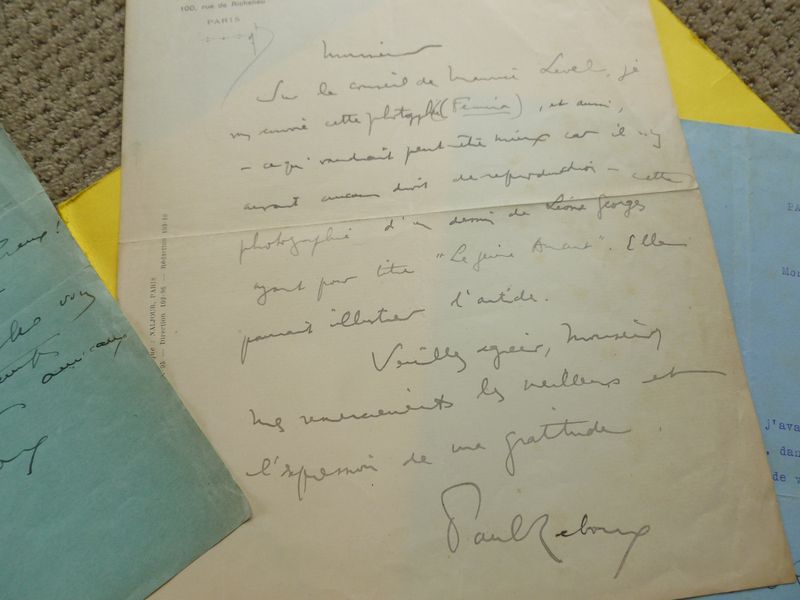 100, rue de Richelieu
PARIS
Monsieur
Sur le conseil de Maurice Level, je
vous envoie cette photographie (Femina), et aussi,
– ce qui vaudrait peut-être mieux car il n'y
aurait aucun droit de reproduction – cette
photographie d'un dessin de Léonie Georges
ayant pour titre "Le jeune Amant". Elle
pourrait illustrer l'article.
Veuillez agréer, Monsieur,
mes remerciements les meilleurs et
l'expression de ma gratitude.
Paul Reboux
NALJOUR, PARIS
Direction 102-95 — Rédaction 102-10
PA
Mo
j'ava
, dan
de v